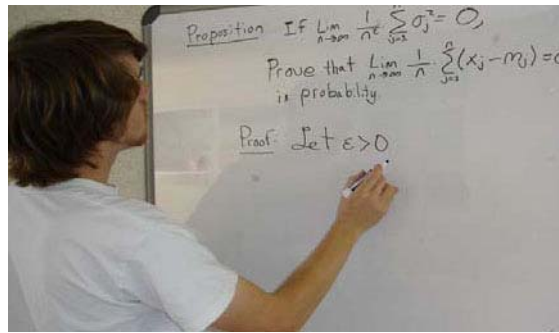 Proposition If Lim n→∞ 1/n² n∑j=1 σj² = 0,
Prove that Lim n→∞ 1/n · n∑j=1 (xj - mj) = 0
is probability.
Proof: Let ε>0